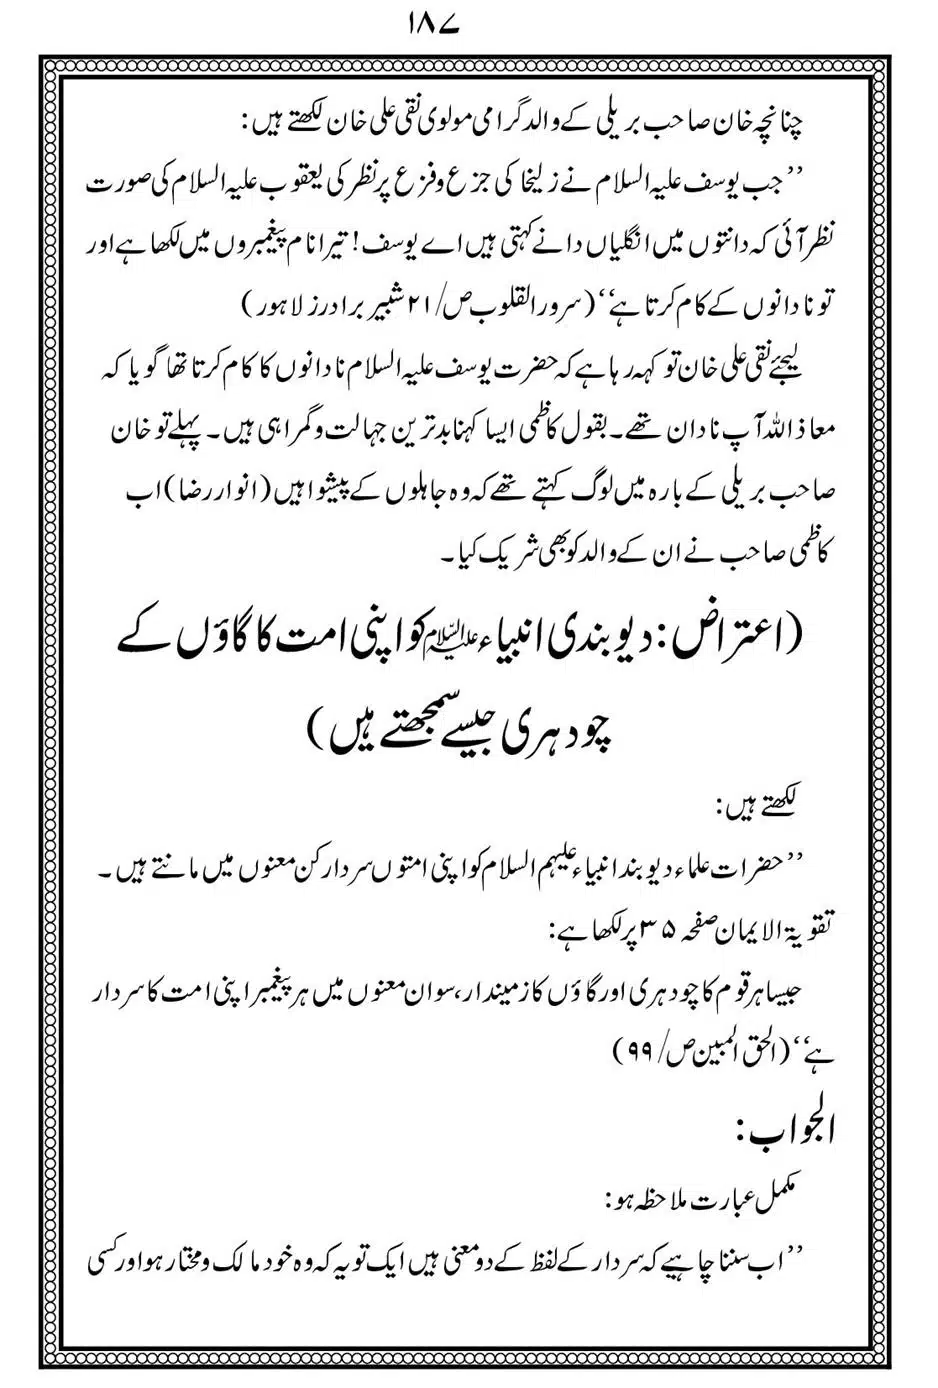 ۱۸۷
چنانچہ خان صاحب بریلی کے والد گرامی مولوی نقی علی خان لکھتے ہیں:
’’جب یوسف علیہ السلام نے زلیخا کی جزع و فزع پر نظر کی یعقوب علیہ السلام کی صورت
نظر آئی کہ دانتوں میں انگلیاں دانے کہتی ہیں اے یوسف! تیرا نام پیغمبروں میں لکھا ہے اور
تو نادانوں کے کام کرتا ہے‘‘ (سرور القلوب ص/۲۱ شبیر برادرز لاہور)
لیجئے نقی علی خان تو کہہ رہا ہے کہ حضرت یوسف علیہ السلام نادانوں کا کام کرتا تھا گویا کہ
معاذ اللہ آپ نادان تھے۔ بقول کاظمی ایسا کہنا بدترین جہالت و گمراہی ہیں۔ پہلے تو خان
صاحب بریلی کے بارہ میں لوگ کہتے تھے کہ وہ جاہلوں کے پیشوا ہیں (انوار رضا) اب
کاظمی صاحب نے ان کے والد کو بھی شریک کیا۔
(اعتراض: دیوبندی انبیاء علیہ السلام کو اپنی امت کا گاؤں کے
چودہری جیسے سمجھتے ہیں)
لکھتے ہیں:
’’حضرات علماء دیوبند انبیاء علیہم السلام کو اپنی امتوں سردار کن معنوں میں مانتے ہیں ۔
تقویۃ الایمان صفحہ ۳۵ پر لکھا ہے:
جیسا ہر قوم کا چودہری اور گاؤں کا زمیندار، سو ان معنوں میں ہر پیغمبر اپنی امت کا سردار
ہے‘‘ (الحق المبین ص/۹۹)
الجواب:
مکمل عبارت ملاحظہ ہو:
’’اب سننا چاہیے کہ سردار کے لفظ کے دو معنی ہیں ایک تو یہ کہ وہ خود مالک و مختار ہو اور کسی